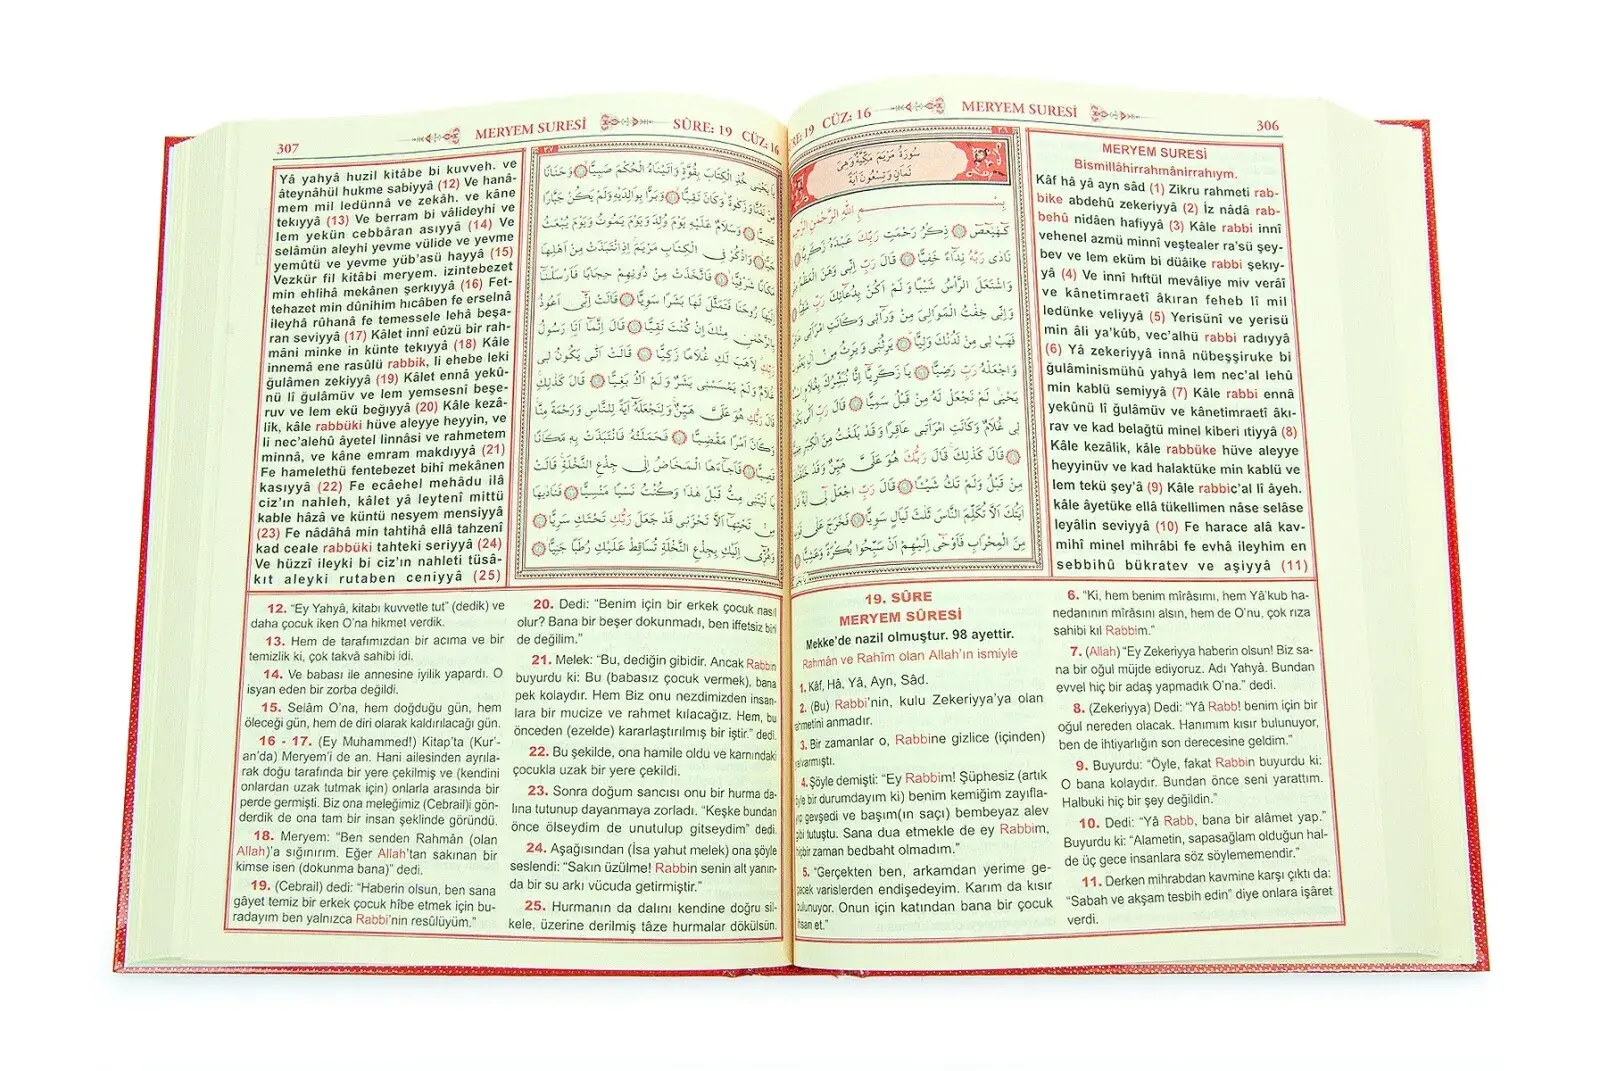 306
MERYEM SURESİ
CÜZ: 16
19
MERYEM SURESİ
Bismillâhirrahmânirrahıym.
Kâf hâ yâ ayn sâd (1) Zikru rahmeti rab-
bike abdehû zekeriyyâ (2) İz nâdâ rab-
behû nidâen hafiyyâ (3) Kâle rabbi innî
vehenel azmü minnî veştealer ra'sü şey-
bev ve lem eküm bi düâike rabbi şekıy-
yâ (4) Ve innî hıftül mevâliye miv verâî
ve kânetimraetî âkıran feheb lî mil
ledünke veliyyâ (5) Yerisünî ve yerisü
min âli ya'kûb, vec'alhü rabbi radıyyâ
(6) Yâ zekeriyyâ innâ nübeşşiruke bi
ğulâminismühû yahyâ lem nec'al lehû
min kablü semiyyâ (7) Kâle rabbi ennâ
yekûnü lî ğulâmüv ve kânetimraetî âkı-
rav ve kad belağtü minel kiberi ıtiyyâ (8)
Kâle kezâlik, kâle rabbüke hüve aleyye
heyyinüv ve kad halaktüke min kablü ve
lem tekü şey'â (9) Kâle rabbic'al lî âyeh.
kâle âyetüke ellâ tükellimen nâse selâse
leyâlin seviyyâ (10) Fe harace alâ kav-
mihî minel mihrâbi fe evhâ ileyhim en
sebbihû bükratev ve aşiyyâ (11)
سُورَةُ مَرْيَمَ مَكِّيَّةٌ وَهِيَ
ثَمَانٍ وَتِسْعُونَ آيَةً
بِسْمِ اللّٰهِ الرَّحْمٰنِ الرَّحِيمِ
كٓهٰيٰعٓصٓ ذِكْرُ رَحْمَتِ رَبِّكَ عَبْدَهُ زَكَرِيَّا
نَادٰى رَبَّهُ نِدَٓاءً خَفِيًّا قَالَ رَبِّ اِنِّى وَهَنَ الْعَظْمُ
وَاشْتَعَلَ الرَّأْسُ شَيْبًا وَلَمْ اَكُنْ بِدُعَٓائِكَ رَبِّ
وَاِنِّى خِفْتُ الْمَوَالِىَ مِنْ وَرَٓائِى وَكَانَتِ امْرَاَتِى
فَهَبْ لِى مِنْ لَدُنْكَ وَلِيًّا يَرِثُنِى وَيَرِثُ مِنْ اٰلِ
وَاجْعَلْهُ رَبِّ رَضِيًّا يَا زَكَرِيَّٓا اِنَّا نُبَشِّرُكَ بِغُلَامٍ
يَحْيٰى لَمْ نَجْعَلْ لَهُ مِنْ قَبْلُ سَمِيًّا قَالَ رَبِّ اَنّٰى
لِى غُلَامٌ وَكَانَتِ امْرَاَتِى عَاقِرًا وَقَدْ بَلَغْتُ مِنَ الْكِبَرِ
قَالَ كَذٰلِكَ قَالَ رَبُّكَ هُوَ عَلَىَّ هَيِّنٌ وَقَدْ
مِنْ قَبْلُ وَلَمْ تَكُ شَيْئًا قَالَ رَبِّ اجْعَلْ لِٓى اٰيَةً
اٰيَتُكَ اَلَّا تُكَلِّمَ النَّاسَ ثَلٰثَ لَيَالٍ سَوِيًّا فَخَرَجَ عَلٰى
مِنَ الْمِحْرَابِ فَاَوْحٰٓى اِلَيْهِمْ اَنْ سَبِّحُوا بُكْرَةً وَعَشِيًّا
19. SÛRE
MERYEM SÛRESİ
Mekke'de nazil olmuştur. 98 ayettir.
Rahmân ve Rahîm olan Allah'ın ismiyle
1. Kâf, Hâ, Yâ, Ayn, Sâd.
2. (Bu) Rabbi'nin, kulu Zekeriyya'ya olan
rahmetini anmadır.
3. Bir zamanlar o, Rabbine gizlice (içinden)
yalvarmıştı.
4. Şöyle demişti: "Ey Rabbim! Şüphesiz (artık
öyle bir durumdayım ki) benim kemiğim zayıfla-
yıp gevşedi ve başım(ın saçı) bembeyaz alev
gibi tutuştu. Sana dua etmekle de ey Rabbim,
hiçbir zaman bedbaht olmadım."
5. "Gerçekten ben, arkamdan yerime ge-
çecek varislerden endişedeyim. Karım da kısır
bulunuyor. Onun için katından bana bir çocuk
ihsan et."
6. "Ki, hem benim mîrâsımı, hem Yâ'kub ha-
nedanının mîrâsını alsın, hem de O'nu, çok rıza
sahibi kıl Rabbim."
7. (Allah) "Ey Zekeriyya haberin olsun! Biz sa-
na bir oğul müjde ediyoruz. Adı Yahyâ. Bundan
evvel hiç bir adaş yapmadık O'na." dedi.
8. (Zekeriyya) Dedi: "Yâ Rabb! benim için bir
oğul nereden olacak. Hanımım kısır bulunuyor,
ben de ihtiyarlığın son derecesine geldim."
9. Buyurdu: "Öyle, fakat Rabbin buyurdu ki:
O bana kolaydır. Bundan önce seni yarattım.
Halbuki hiç bir şey değildin."
10. Dedi: "Yâ Rabb, bana bir alâmet yap."
Buyurdu ki: "Alametin, sapasağlam olduğun hal-
de üç gece insanlara söz söylememendir."
11. Derken mihrabdan kavmine karşı çıktı da:
"Sabah ve akşam tesbih edin" diye onlara işâret
verdi.
307
MERYEM SURESİ
SÛRE: 19 CÜZ: 16
Yâ yahyâ huzil kitâbe bi kuvveh. ve
âteynâhül hukme sabiyyâ (12) Ve hanâ-
mem mil ledünnâ ve zekâh. ve kâne
tekıyyâ (13) Ve berram bi vâlideyhi ve
lem yekün cebbâran asıyyâ (14) Ve
selâmün aleyhi yevme vülide ve yevme
yemûtü ve yevme yüb'asü hayyâ (15)
Vezkür fil kitâbi meryem. izintebezet
min ehlihâ mekânen şerkıyyâ (16) Fet-
tehazet min dûnihim hıcâben fe erselnâ
ileyhâ rûhanâ fe temessele lehâ beşa-
ran seviyyâ (17) Kâlet innî eûzü bir rah-
mâni minke in künte tekıyyâ (18) Kâle
innemâ ene rasûlü rabbik, li ehebe leki
ğulâmen zekiyyâ (19) Kâlet ennâ yekû-
nü lî ğulâmüv ve lem yemsesnî beşe-
ruv ve lem ekü beğıyyâ (20) Kâle kezâ-
lik, kâle rabbüki hüve aleyye heyyin, ve
li nec'alehû âyetel linnâsi ve rahmetem
minnâ, ve kâne emram makdıyyâ (21)
Fe hamelethü fentebezet bihî mekânen
kasıyyâ (22) Fe ecâehel mehâdu ilâ
ciz'ın nahleh, kâlet yâ leytenî mittü
kable hâzâ ve küntü nesyem mensiyyâ
(23) Fe nâdâhâ min tahtihâ ellâ tahzenî
kad ceale rabbüki tahteki seriyyâ (24)
Ve hüzzî ileyki bi ciz'ın nahleti tüsâ-
kıt aleyki rutaben ceniyyâ (25)
يَا يَحْيٰى خُذِ الْكِتَابَ بِقُوَّةٍ وَاٰتَيْنَاهُ الْحُكْمَ صَبِيًّا وَحَنَانًا
مِنْ لَدُنَّا وَزَكٰوةً وَكَانَ تَقِيًّا وَبَرًّا بِوَالِدَيْهِ وَلَمْ يَكُنْ جَبَّارًا
عَصِيًّا وَسَلَامٌ عَلَيْهِ يَوْمَ وُلِدَ وَيَوْمَ يَمُوتُ وَيَوْمَ يُبْعَثُ
حَيًّا وَاذْكُرْ فِى الْكِتَابِ مَرْيَمَ اِذِ انْتَبَذَتْ مِنْ اَهْلِهَا
مَكَانًا شَرْقِيًّا فَاتَّخَذَتْ مِنْ دُونِهِمْ حِجَابًا فَاَرْسَلْنَٓا
اِلَيْهَا رُوحَنَا فَتَمَثَّلَ لَهَا بَشَرًا سَوِيًّا قَالَتْ اِنِّٓى اَعُوذُ
بِالرَّحْمٰنِ مِنْكَ اِنْ كُنْتَ تَقِيًّا قَالَ اِنَّمَٓا اَنَا رَسُولُ
رَبِّكِ لِاَهَبَ لَكِ غُلَامًا زَكِيًّا قَالَتْ اَنّٰى يَكُونُ لِى
غُلَامٌ وَلَمْ يَمْسَسْنِى بَشَرٌ وَلَمْ اَكُ بَغِيًّا قَالَ كَذٰلِكِ
قَالَ رَبُّكِ هُوَ عَلَىَّ هَيِّنٌ وَلِنَجْعَلَهُٓ اٰيَةً لِلنَّاسِ وَرَحْمَةً مِنَّا
وَكَانَ اَمْرًا مَقْضِيًّا فَحَمَلَتْهُ فَانْتَبَذَتْ بِهِ مَكَانًا
قَصِيًّا فَاَجَٓاءَهَا الْمَخَاضُ اِلٰى جِذْعِ النَّخْلَةِ قَالَتْ
يَا لَيْتَنِى مِتُّ قَبْلَ هٰذَا وَكُنْتُ نَسْيًا مَنْسِيًّا فَنَادٰيهَا
مِنْ تَحْتِهَٓا اَلَّا تَحْزَنِى قَدْ جَعَلَ رَبُّكِ تَحْتَكِ سَرِيًّا
وَهُزِّٓى اِلَيْكِ بِجِذْعِ النَّخْلَةِ تُسَاقِطْ عَلَيْكِ رُطَبًا جَنِيًّا
12. "Ey Yahyâ, kitabı kuvvetle tut" (dedik) ve
daha çocuk iken O'na hikmet verdik.
13. Hem de tarafımızdan bir acıma ve bir
temizlik ki, çok takvâ sahibi idi.
14. Ve babası ile annesine iyilik yapardı. O
isyan eden bir zorba değildi.
15. Selâm O'na, hem doğduğu gün, hem
öleceği gün, hem de diri olarak kaldırılacağı gün.
16 - 17. (Ey Muhammed!) Kitap'ta (Kur'-
an'da) Meryem'i de an. Hani ailesinden ayrıla-
rak doğu tarafında bir yere çekilmiş ve (kendini
onlardan uzak tutmak için) onlarla arasında bir
perde germişti. Biz ona meleğimiz (Cebrail)i gön-
derdik de ona tam bir insan şeklinde göründü.
18. Meryem: "Ben senden Rahmân (olan
Allah)'a sığınırım. Eğer Allah'tan sakınan bir
kimse isen (dokunma bana)" dedi.
19. (Cebrail) dedi: "Haberin olsun, ben sana
gâyet temiz bir erkek çocuk hîbe etmek için bu-
radayım ben yalnızca Rabbi'nin resûlüyüm."
20. Dedi: "Benim için bir erkek çocuk nasıl
olur? Bana bir beşer dokunmadı, ben iffetsiz biri
de değilim."
21. Melek: "Bu, dediğin gibidir. Ancak Rabbin
buyurdu ki: Bu (babasız çocuk vermek), bana
pek kolaydır. Hem Biz onu nezdimizden insan-
lara bir mucize ve rahmet kılacağız. Hem, bu
önceden (ezelde) kararlaştırılmış bir iştir." dedi.
22. Bu şekilde, ona hamile oldu ve karnındaki
çocukla uzak bir yere çekildi.
23. Sonra doğum sancısı onu bir hurma da-
lına tutunup dayanmaya zorladı. "Keşke bundan
önce ölseydim de unutulup gitseydim" dedi.
24. Aşağısından (İsa yahut melek) ona şöyle
seslendi: "Sakın üzülme! Rabbin senin alt yanın-
da bir su arkı vücuda getirmiştir."
25. Hurmanın da dalını kendine doğru sil-
kele, üzerine derilmiş tâze hurmalar dökülsün.